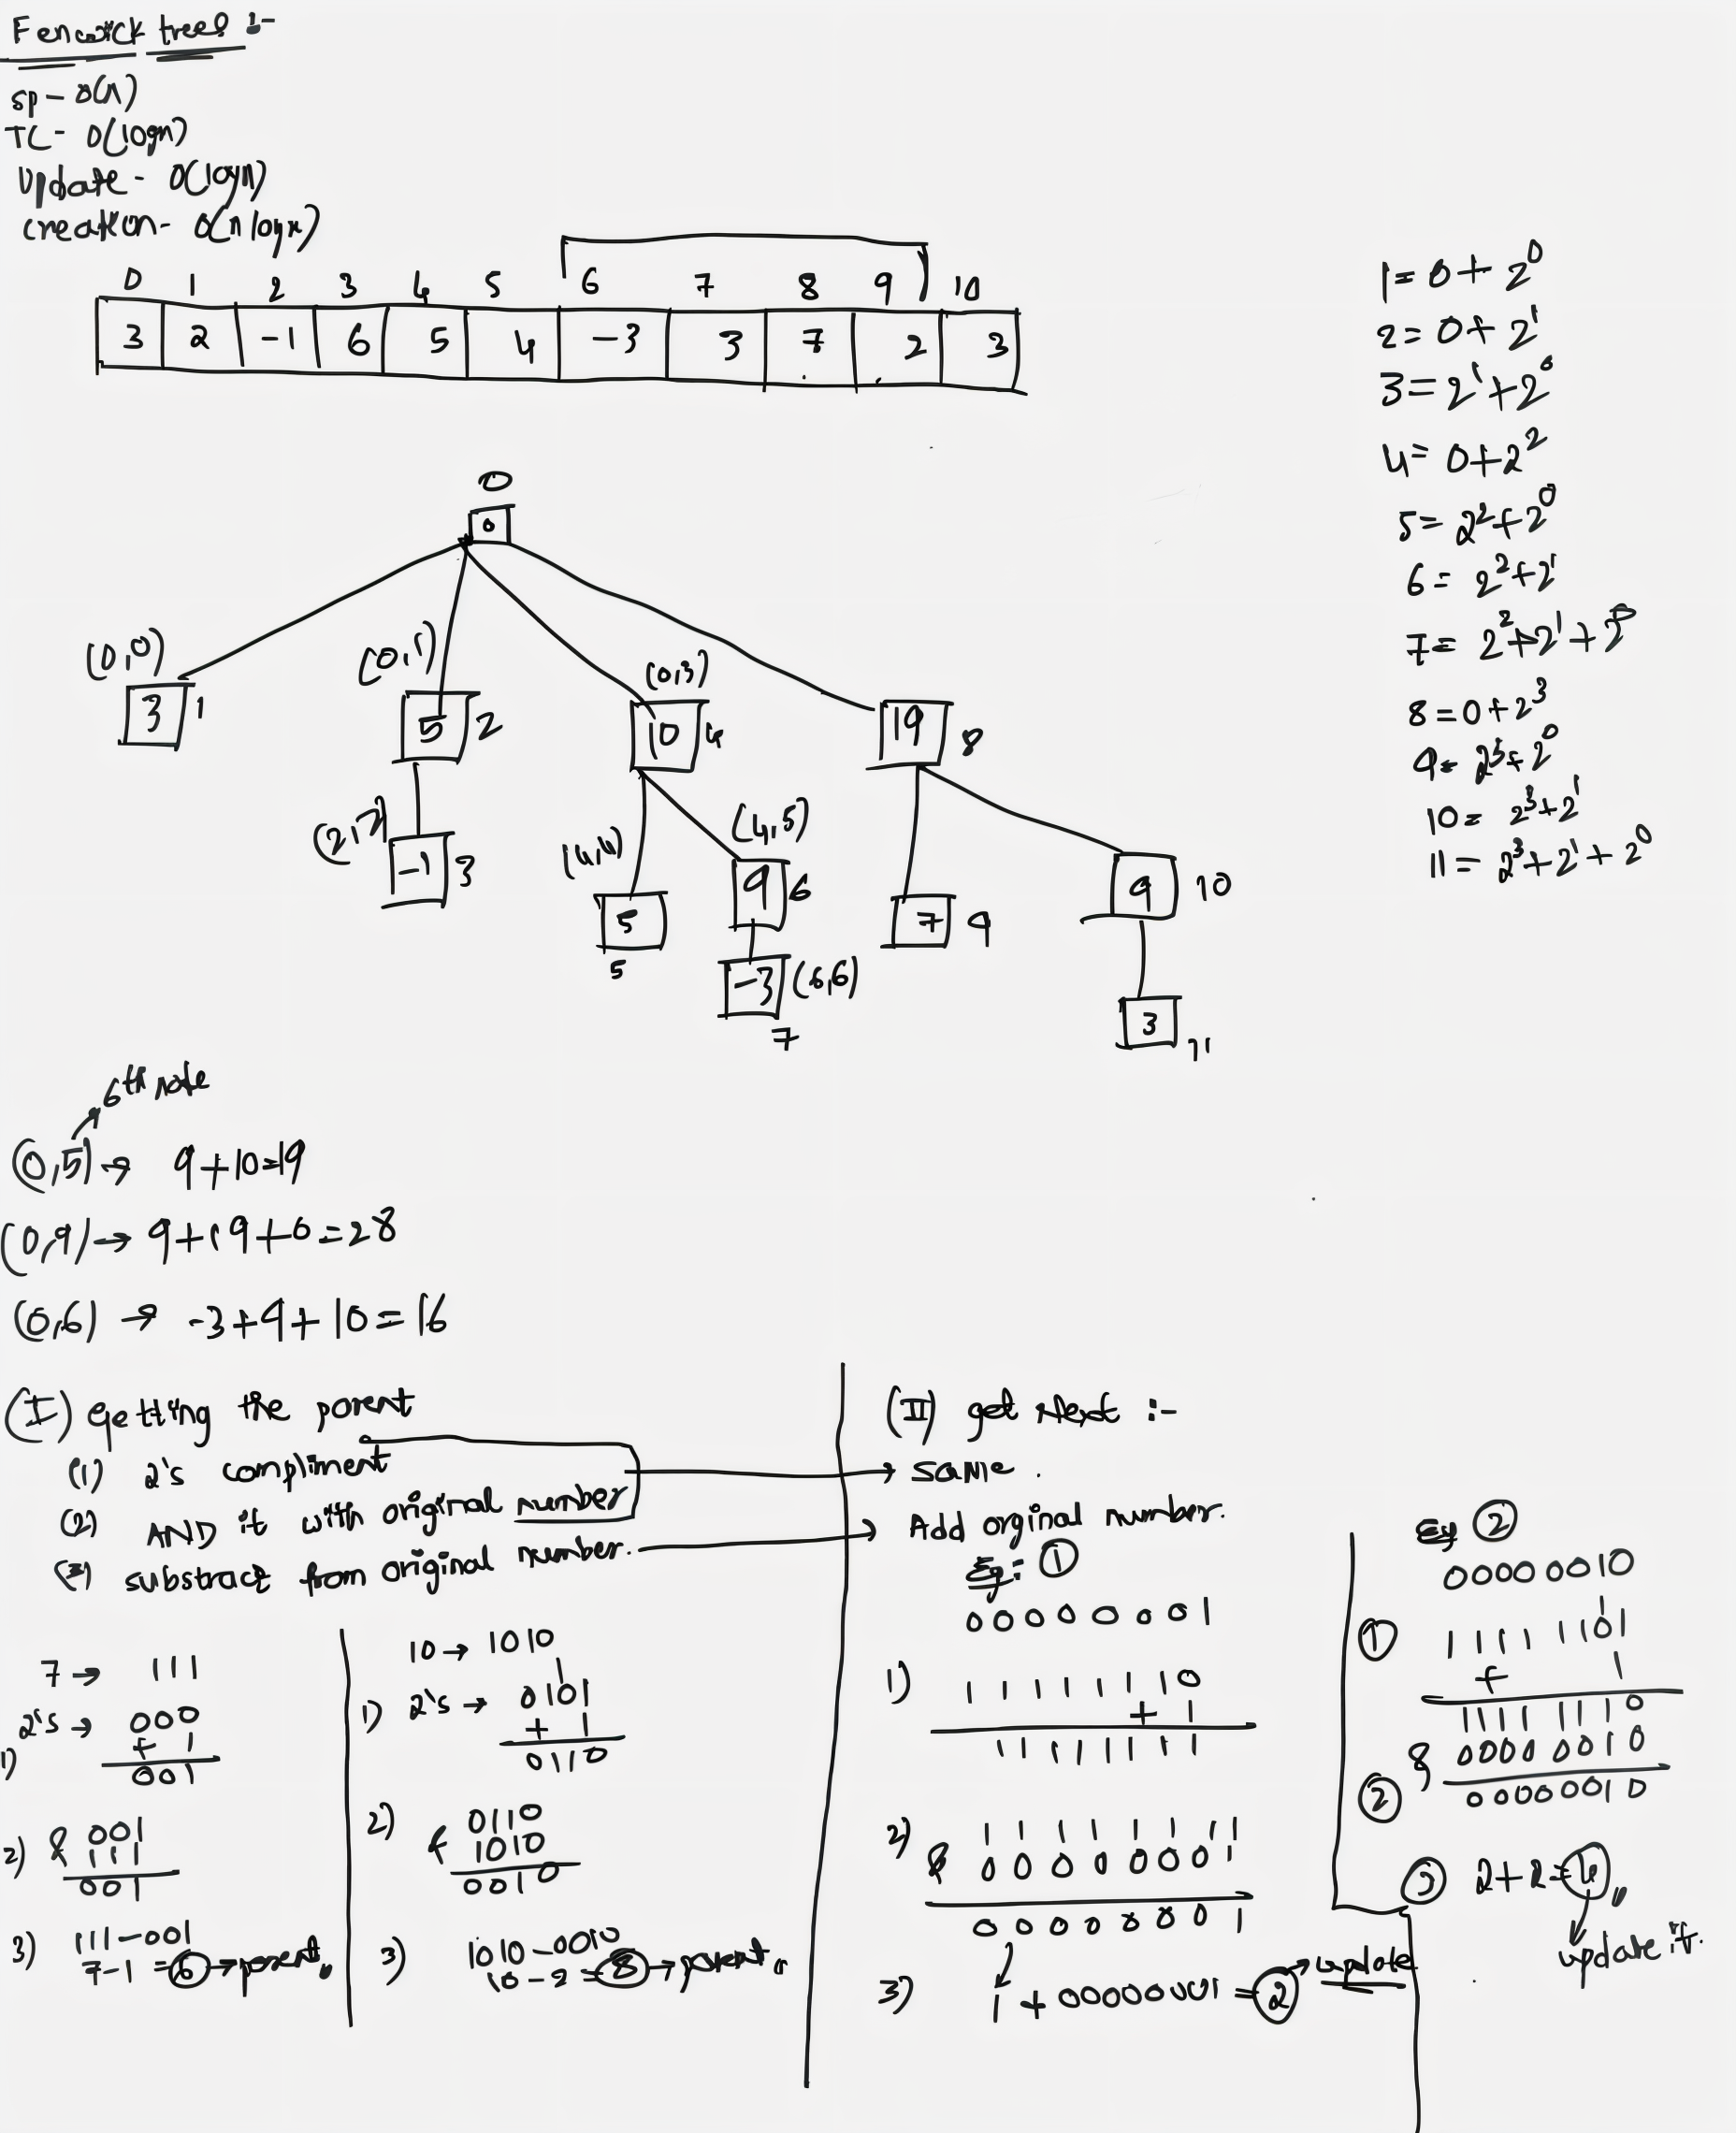 Fenwick tree :-
sp - O(N)
TC - O(logn)
Update - O(logn)
creation - O(n logn)
0 1 2 3 4 5 6 7 8 9 10
3 2 -1 6 5 4 -3 3 7 2 3
1 = 0 + 2^0
2 = 0 + 2^1
3 = 2^1 + 2^0
4 = 0 + 2^2
5 = 2^2 + 2^0
6 = 2^2 + 2^1
7 = 2^2 + 2^1 + 2^0
8 = 0 + 2^3
9 = 2^3 + 2^0
10 = 2^3 + 2^1
11 = 2^3 + 2^1 + 2^0
0
0
(0,0) (0,1) (0,3)
3 1 5 2 10 4 19 8
(2,2) (4,4) (4,5)
-1 3 5 9 6 7 9 9 10
5 -3 (6,6) 3
7 11
6th node
(0,5) → 9+10=19
(0,9) → 9+19+0=28
(0,6) → -3+9+10=16
(I) getting the parent
(1) 2's compliment
(2) AND it with original number
(3) substract from original number.
7 → 111
2's → 000
1) + 1
001
2) & 001
111
001
3) 111-001
7-1 = 6 → parent
10 → 1010
1) 2's → 0101
+ 1
0110
2) 0110
& 1010
0010
3) 1010-0010
10-2 = 8 → parent
(II) get Next :-
→ same.
→ Add orginal number.
Eg: ①
00000001
1) 11111110
+ 1
11111111
2) 11111111
& 00000001
00000001
3) 1 + 00000001 = 2 → update
Eg ②
00000010
① 11111101
+ 1
11111110
② & 00000010
00000010
③ 2+2=4
update it.